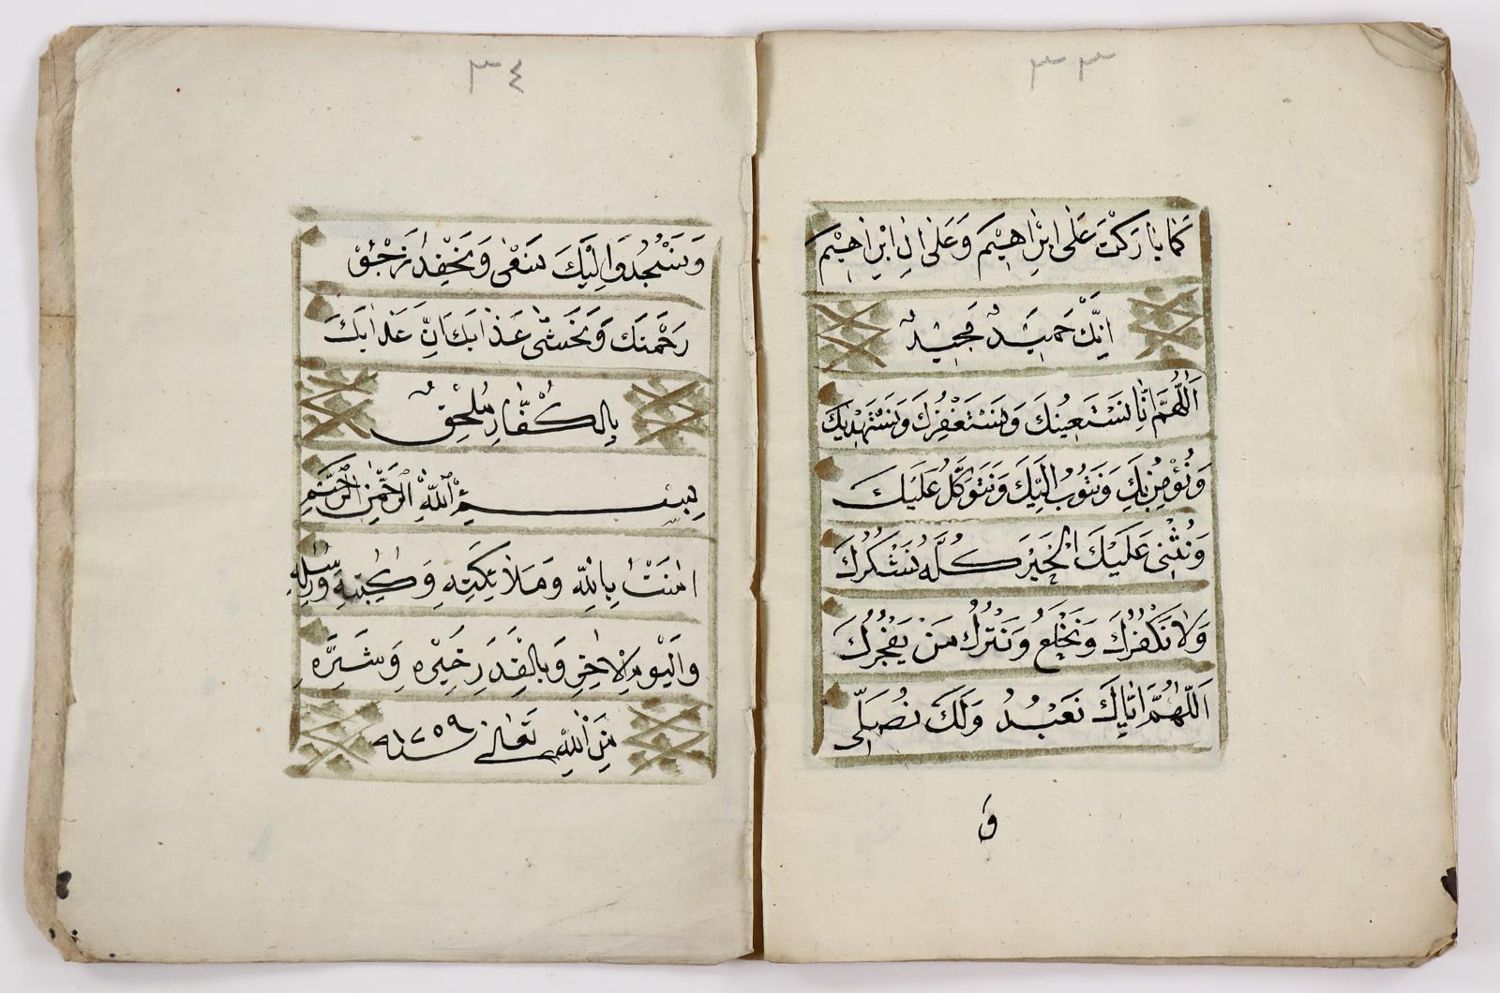 ٣٣
كَمَا بَارَكْتَ عَلَى اِبْرَاهِيْمَ وَعَلَى اٰلِ اِبْرَاهِيْمَ
اِنَّكَ حَمِيْدٌ مَجِيْدٌ
اَللّٰهُمَّ اِنَّا نَسْتَعِيْنُكَ وَنَسْتَغْفِرُكَ وَنَسْتَهْدِيْكَ
وَنُؤْمِنُ بِكَ وَنَتُوْبُ اِلَيْكَ وَنَتَوَكَّلُ عَلَيْكَ
وَنُثْنِى عَلَيْكَ الْخَيْرَ كُلَّهُ نَشْكُرُكَ
وَلَا نَكْفُرُكَ وَنَخْلَعُ وَنَتْرُكُ مَنْ يَفْجُرُكَ
اَللّٰهُمَّ اِيَّاكَ نَعْبُدُ وَلَكَ نُصَلِّى
وَ
٣٤
وَنَسْجُدُ وَاِلَيْكَ نَسْعٰى وَنَحْفِدُ نَرْجُوْ
رَحْمَتَكَ وَنَخْشٰى عَذَابَكَ اِنَّ عَذَابَكَ
بِالْكُفَّارِ مُلْحِقٌ
بِسْمِ اللّٰهِ الرَّحْمٰنِ الرَّحِيْمِ
اٰمَنْتُ بِاللّٰهِ وَمَلَائِكَتِهِ وَكُتُبِهِ وَرُسُلِهِ
وَالْيَوْمِ الْاٰخِرِ وَبِالْقَدَرِ خَيْرِهِ وَشَرِّهِ
مِنَ اللّٰهِ تَعَالٰى ١٢٥٩